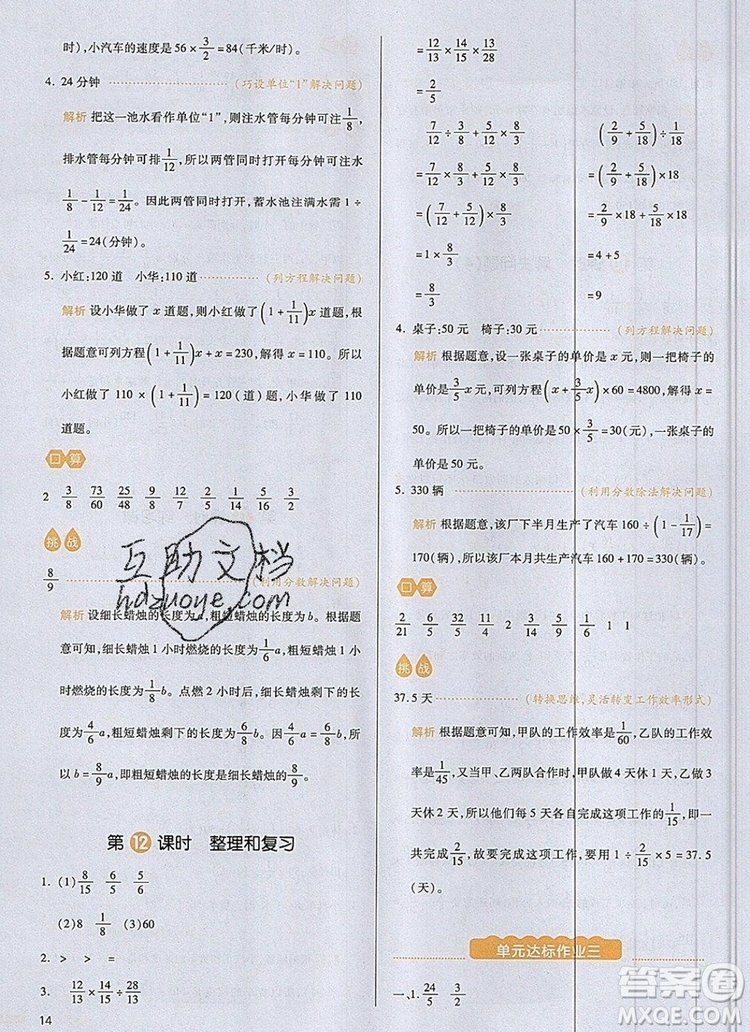 时),小汽车的速度是56×3/2=84(千米/时)。
4. 24分钟 (巧设单位“1”解决问题)
解析 把这一池水看作单位“1”,则注水管每分钟可注1/8,
排水管每分钟可排1/12,所以两管同时打开,每分钟可注水
1/8-1/12=1/24。因此两管同时打开,蓄水池注满水需要1÷
1/24=24(分钟)。
5. 小红:120道 小华:110道 (列方程解决问题)
解析 设小华做了x道题,则小红做了(1+1/11)x道题,根
据题意可列方程(1+1/11)x+x=230,解得x=110。所以
小红做了110×(1+1/11)=120(道)题,小华做了110
道题。
口算
2 3/8 73/60 25/32 12/16 9/7 2/5 1/14 5/16 3/32
挑战
8/9 (利用分数解决问题)
解析 设细长蜡烛的长度为a,粗短蜡烛的长度为b。根据题
意可知,细长蜡烛1小时燃烧的长度为1/6a,粗短蜡烛1小
时燃烧的长度为1/8b。点燃2小时后,细长蜡烛剩下的长
度为4/6a,粗短蜡烛剩下的长度为6/8b。则4/6a=6/8b,所
以b=8/9a,即粗短蜡烛的长度是细长蜡烛长度的8/9。
第12课时 整理和复习
1. (1)8/15 6/5 5/6
(2)8 1/8 (3)60
2. > > =
3. 12/13×14/15÷28/13
14
=12/13×14/15×13/28
=2/5
7/12÷3/8+5/12×8/3
=7/12×8/3+5/12×8/3
=(7/12+5/12)×8/3
=1×8/3
=8/3
(2/9+5/18)÷1/18
=(2/9+5/18)×18
=2/9×18+5/18×18
=4+5
=9
4. 桌子:50元 椅子:30元 (列方程解决问题)
解析 根据题意,设一张桌子的单价是x元,则一把椅子的
单价是3/5x元,可列方程(x+3/5x)×60=4800,解得x=
50。50×3/5=30(元),所以一把椅子的单价是30元,一张桌子的
单价是50元。
5. 330辆 (利用分数除法解决问题)
解析 根据题意,该厂下半月生产了汽车160÷(1-1/17)=
170(辆),所以该厂本月共生产汽车160+170=330(辆)。
口算
2/21 6/5 32/45 5/11 2/9 4 1/15 13/5 11/13
挑战
37.5天 (转换思维,灵活转变工作效率形式)
解析 根据题意可知,甲队的工作效率是1/60,乙队的工作效
率是1/45,又当甲、乙两队合作时,甲队每工作4天休1天,乙队每工作3
天休2天,则甲、乙两队每5天各自完成这项工作的1/15,即一
共完成2/15,故要完成这项工作,共需要1÷2/15×5=37.5
(天)。
单元达标作业三
一、1. 24/5 3/2
互助文档
hdzuoye.com
答案圈
MXQE.COM